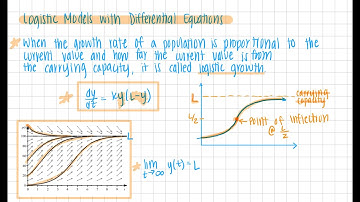 Logistic Models with Differential Equations
* When the growth rate of a population is proportional to the
current value and how far the current value is from
the carrying capacity, it is called logistic growth.
* dy/dt = ky(L-y)
L
carrying
capacity
L/2
* Point of inflection
@ L/2
L
* lim t→∞ y(t) = L